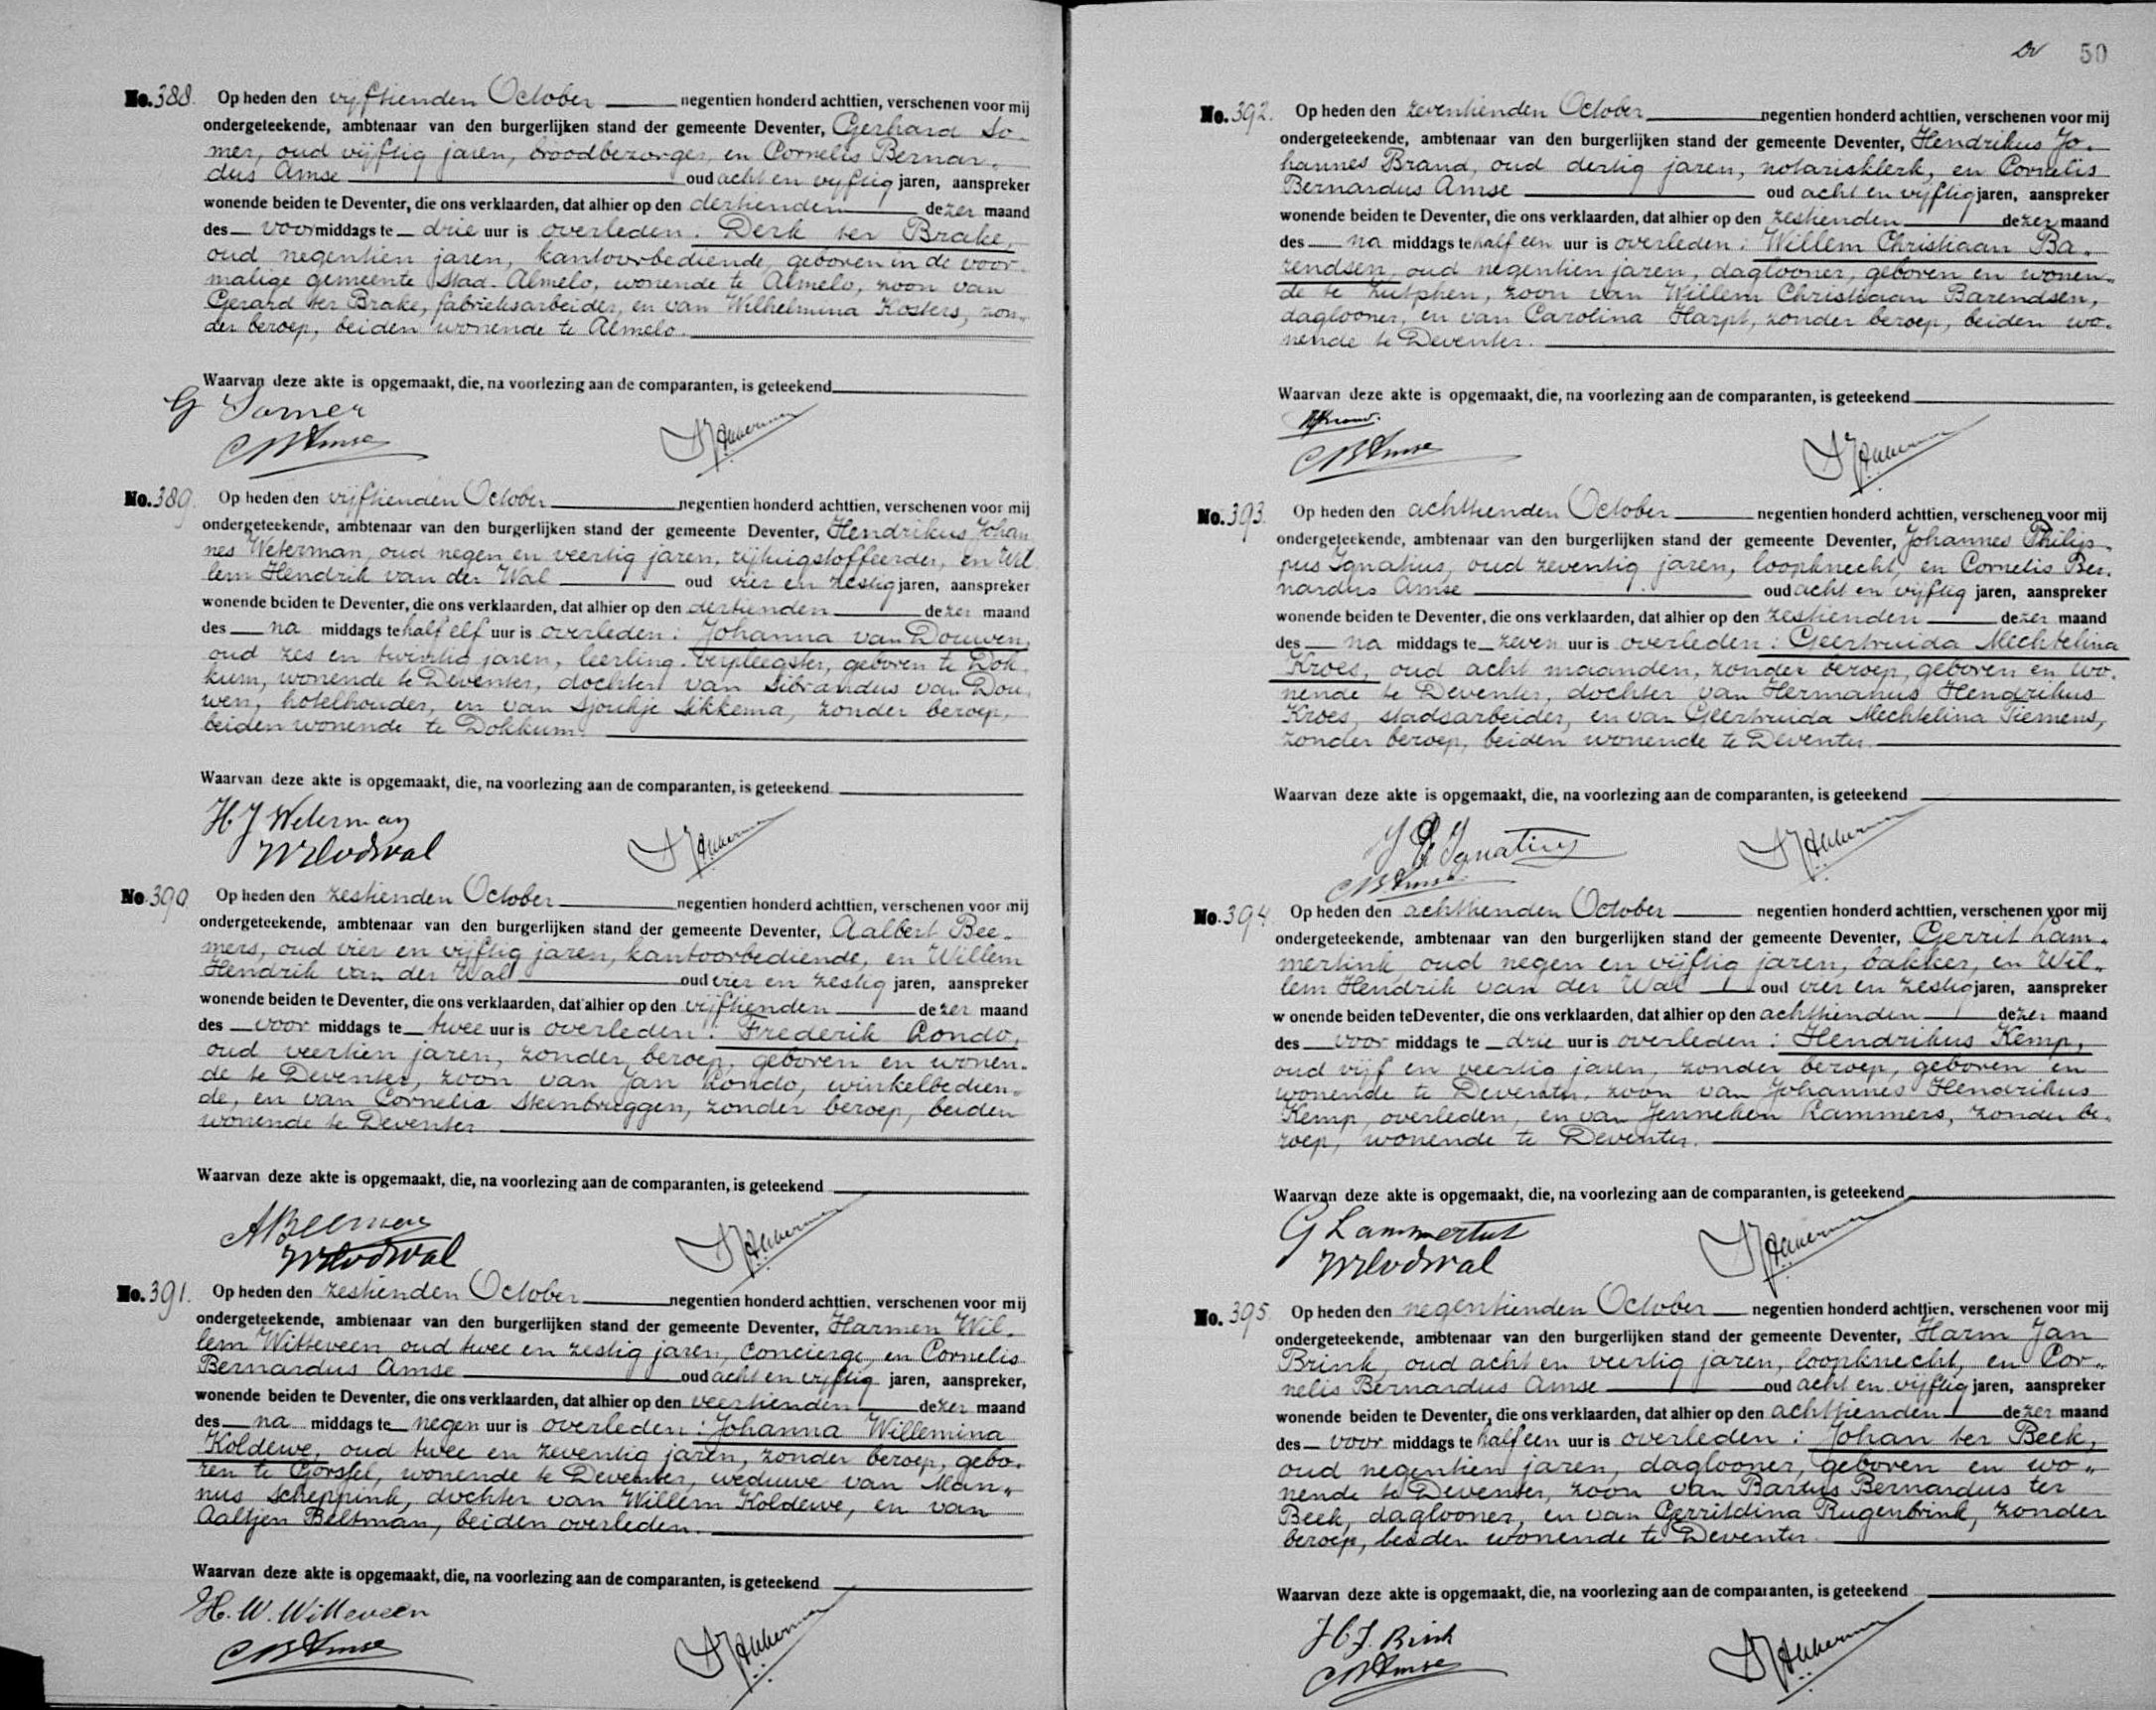 No. 388. Op heden den vijftienden October negentien honderd achttien, verschenen voor mij
ondergeteekende, ambtenaar van den burgerlijken stand der gemeente Deventer, Gerhard So-
mer, oud vijftig jaren, broodbezorger, en Cornelis Bernar-
dus Amse oud acht en vijftig jaren, aanspreker
wonende beiden te Deventer, die ons verklaarden, dat alhier op den dertienden dezer maand
des voormiddags te drie uur is overleden: Derk ter Brake,
oud negentien jaren, kantoorbediende, geboren in de voor-
malige gemeente Stad-Almelo, wonende te Almelo, zoon van
Gerard ter Brake, fabrieksarbeider, en van Wilhelmina Kosters, zon-
der beroep, beiden wonende te Almelo.
Waarvan deze akte is opgemaakt, die, na voorlezing aan de comparanten, is geteekend
G Somer
CBAmse
No. 389. Op heden den vijftienden October negentien honderd achttien, verschenen voor mij
ondergeteekende, ambtenaar van den burgerlijken stand der gemeente Deventer, Hendrikus Johan
nes Weterman, oud negen en veertig jaren, rijtuigstoffeerder, en Wil
lem Hendrik van der Wal oud vier en zestig jaren, aanspreker
wonende beiden te Deventer, die ons verklaarden, dat alhier op den dertienden dezer maand
des na middags te half elf uur is overleden: Johanna van Douwen,
oud zes en twintig jaren, leerling-verpleegster, geboren te Dok-
kum, wonende te Deventer, dochter van Sibrandus van Dou-
wen, hotelhouder, en van Sjoukje Sikkema, zonder beroep,
beiden wonende te Dokkum.
Waarvan deze akte is opgemaakt, die, na voorlezing aan de comparanten, is geteekend
H J Weterman
WHvdWal
No. 390. Op heden den zestienden October negentien honderd achttien, verschenen voor mij
ondergeteekende, ambtenaar van den burgerlijken stand der gemeente Deventer, Aalbert Bee-
mers, oud vier en vijftig jaren, kantoorbediende, en Willem
Hendrik van der Wal oud vier en zestig jaren, aanspreker
wonende beiden te Deventer, die ons verklaarden, dat alhier op den vijftienden dezer maand
des voor middags te twee uur is overleden: Frederik Londo,
oud veertien jaren, zonder beroep, geboren en wonen-
de te Deventer, zoon van Jan Londo, winkelbedien-
de, en van Cornelia Steenbruggen, zonder beroep, beiden
wonende te Deventer
Waarvan deze akte is opgemaakt, die, na voorlezing aan de comparanten, is geteekend
ABeemers
WHvdWal
No. 391. Op heden den zestienden October negentien honderd achttien, verschenen voor mij
ondergeteekende, ambtenaar van den burgerlijken stand der gemeente Deventer, Harmen Wil-
lem Witteveen oud twee en zestig jaren, concierge, en Cornelis
Bernardus Amse oud acht en vijftig jaren, aanspreker,
wonende beiden te Deventer, die ons verklaarden, dat alhier op den veertienden dezer maand
des na middags te negen uur is overleden: Johanna Willemina
Koldewe, oud twee en zeventig jaren, zonder beroep, gebo-
ren te Gorssel, wonende te Deventer, weduwe van Man-
nus Scheppink, dochter van Willem Koldewe, en van
Aaltjen Beltman, beiden overleden.
Waarvan deze akte is opgemaakt, die, na voorlezing aan de comparanten, is geteekend
H. W. Witteveen
CBAmse
50
No. 392. Op heden den zeventienden October negentien honderd achttien, verschenen voor mij
ondergeteekende, ambtenaar van den burgerlijken stand der gemeente Deventer, Hendrikus Jo-
hannes Brand, oud dertig jaren, notarisklerk, en Cornelis
Bernardus Amse oud acht en vijftig jaren, aanspreker
wonende beiden te Deventer, die ons verklaarden, dat alhier op den zestienden dezer maand
des na middags te half een uur is overleden: Willem Christiaan Ba-
rendsen, oud negentien jaren, daglooner, geboren en wonen-
de te Zutphen, zoon van Willem Christiaan Barendsen,
daglooner, en van Carolina Harpt, zonder beroep, beiden wo-
nende te Deventer.
Waarvan deze akte is opgemaakt, die, na voorlezing aan de comparanten, is geteekend
HJBrand.
CBAmse
No. 393. Op heden den achttienden October negentien honderd achttien, verschenen voor mij
ondergeteekende, ambtenaar van den burgerlijken stand der gemeente Deventer, Johannes Philip-
pus Ignatius, oud zeventig jaren, loopknecht, en Cornelis Ber-
nardus Amse oud acht en vijftig jaren, aanspreker
wonende beiden te Deventer, die ons verklaarden, dat alhier op den zestienden dezer maand
des na middags te zeven uur is overleden: Geertruida Mechtelina
Kroes, oud acht maanden, zonder beroep, geboren en wo-
nende te Deventer, dochter van Hermanus Hendrikus
Kroes, stadsarbeider, en van Geertruida Mechtelina Tiemens,
zonder beroep, beiden wonende te Deventer.
Waarvan deze akte is opgemaakt, die, na voorlezing aan de comparanten, is geteekend
J P Ignatius
CBAmse
No. 394. Op heden den achttienden October negentien honderd achttien, verschenen voor mij
ondergeteekende, ambtenaar van den burgerlijken stand der gemeente Deventer, Gerrit Lam-
mertink, oud negen en vijftig jaren, bakker, en Wil-
lem Hendrik van der Wal oud vier en zestig jaren, aanspreker
wonende beiden te Deventer, die ons verklaarden, dat alhier op den achttienden dezer maand
des voor middags te drie uur is overleden: Hendrikus Kemp,
oud vijf en veertig jaren, zonder beroep, geboren en
wonende te Deventer, zoon van Johannes Hendrikus
Kemp, overleden, en van Jenneken Rammers, zonder be-
roep, wonende te Deventer.
Waarvan deze akte is opgemaakt, die, na voorlezing aan de comparanten, is geteekend
G Lammertink
WHvdWal
No. 395. Op heden den negentienden October negentien honderd achttien, verschenen voor mij
ondergeteekende, ambtenaar van den burgerlijken stand der gemeente Deventer, Harm Jan
Brink, oud acht en veertig jaren, loopknecht, en Cor-
nelis Bernardus Amse oud acht en vijftig jaren, aanspreker
wonende beiden te Deventer, die ons verklaarden, dat alhier op den achttienden dezer maand
des voor middags te half een uur is overleden: Johan ter Beek,
oud negentien jaren, daglooner, geboren en wo-
nende te Deventer, zoon van Bartus Bernardus ter
Beek, daglooner, en van Gerritdina Rugenbrink, zonder
beroep, beiden wonende te Deventer.
Waarvan deze akte is opgemaakt, die, na voorlezing aan de comparanten, is geteekend
H J. Brink
CBAmse